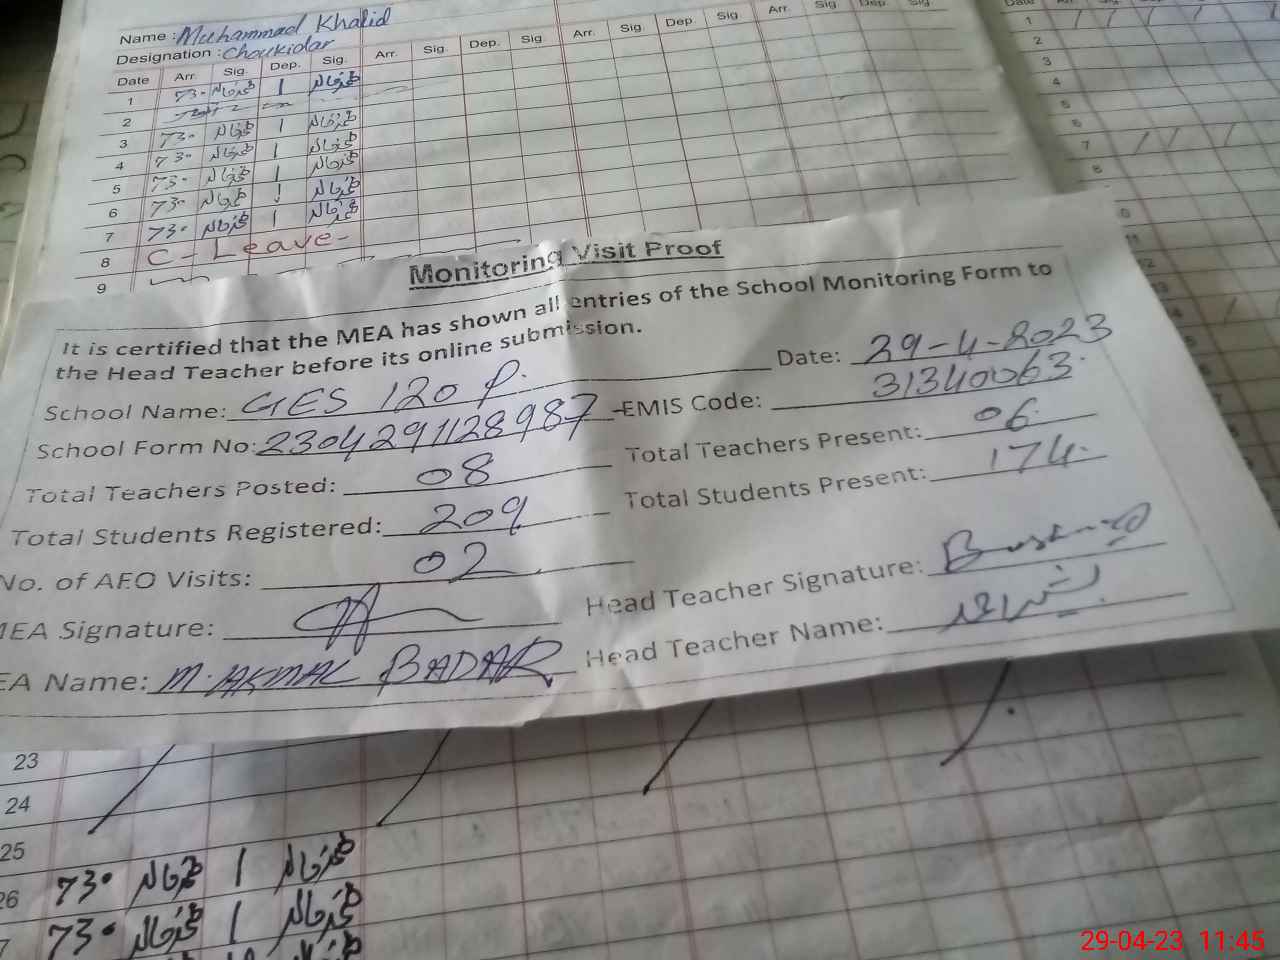 Name : Muhammad Khalid
Designation : Choukidar
Date Arr. Sig. Dep. Sig. Arr. Sig. Dep. Sig. Arr. Sig. Dep. Sig Arr. Sig Dep. Sig
1 730 محمد خالد 1 محمد خالد
2
3 730 محمد خالد 1 محمد خالد
4 730 محمد خالد 1 محمد خالد
5 730 محمد خالد 1 محمد خالد
6 730 محمد خالد 1 محمد خالد
7 730 محمد خالد 1 محمد خالد
8 C - Leave -
9
Monitoring Visit Proof
It is certified that the MEA has shown all entries of the School Monitoring Form to
the Head Teacher before its online submission.
Date: 29-4-2023
School Name: GES 120 P.
EMIS Code: 31340063
School Form No: 2304291128987
Total Teachers Present: 06
Total Teachers Posted: 08
Total Students Present: 174
Total Students Registered: 209
No. of AEO Visits: 02
Head Teacher Signature:
MEA Signature:
Head Teacher Name:
EA Name: M. AKMAL BADAR
23
24
25 730 محمد خالد 1 محمد خالد
26 730 محمد خالد 1 محمد خالد
7
Date
1
2
3
4
5
6
7
8
11
12
13
14
29-04-23 11:45